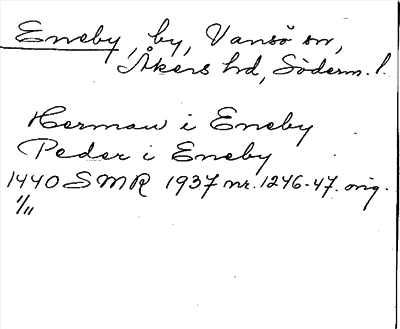 Eneby, by, Vansö sn,
Åkers hd, Söderm. l.
Herman i Eneby
Peder i Eneby
1440 SMR 1937 nr. 1246-47. orig.
1/11